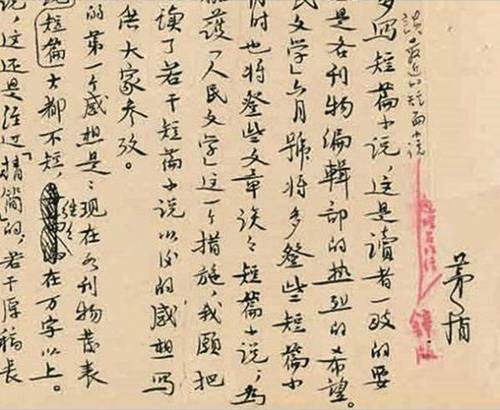 茅盾
谈最近的短篇小说
锌版
多写短篇小说,这是读者一致的要
是各刊物编輯部的热烈的希望。
民文学」六月號将多登些短篇小
时也将登些文章谈谈短篇小说;为
护「人民文学」这一个措施,我愿把
读了若干短篇小说以后的感想写
供大家参考。
的第一个感想是:现在各刊物发表
短篇」大都不短,往往在万字以上。
说,这还是经过「精简」的,若干原稿长